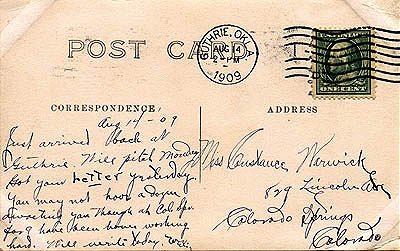 POST CARD
GUTHRIE, OKLA.
AUG 14
PM
1909
U.S. POSTAGE
ONE CENT
CORRESPONDENCE
ADDRESS
Aug 14 - 09
Just arrived back at
Guthrie. Will pitch Monday
Got your letter yesterday
You may not have
you though as Col Spgs
for I have been working
hard. Will write today.
Miss Constance Warwick
829 Lincoln Ave
Colorado Springs
Colorado